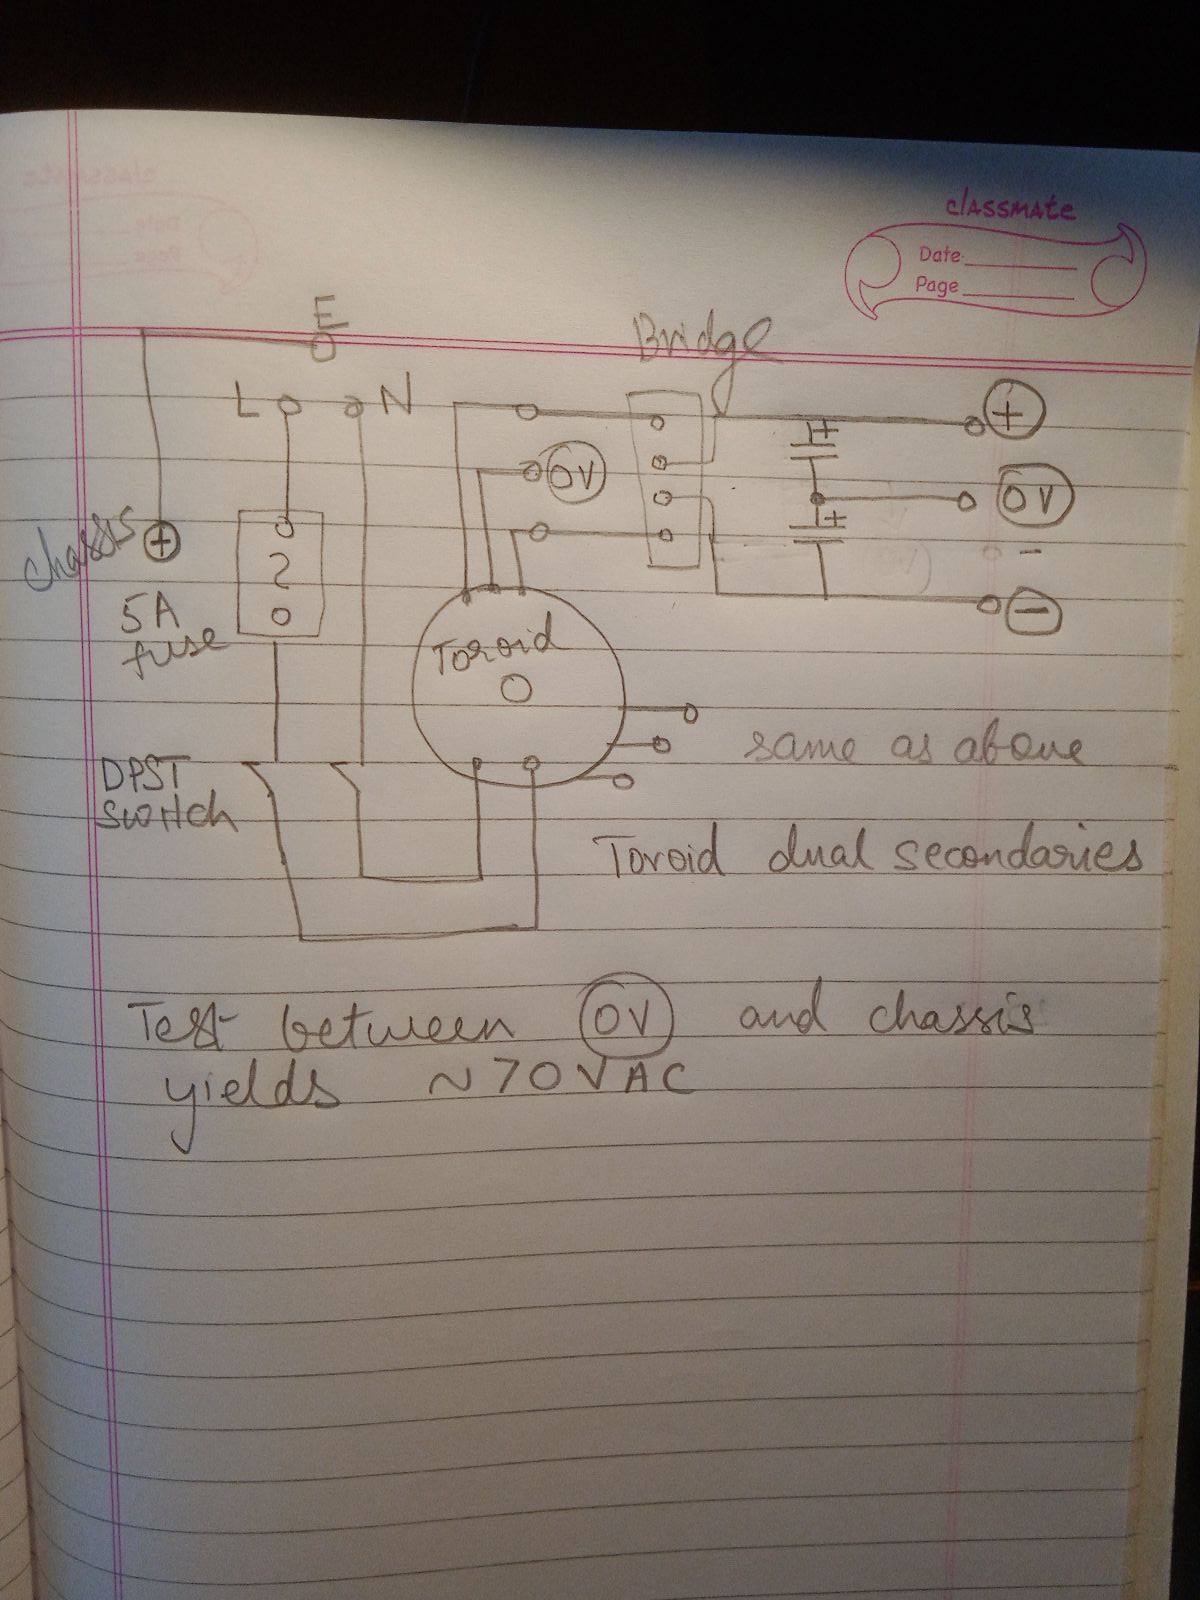 classmate
Date
Page
E
Bridge
L N
+
0V
0V
chassis
5A
fuse
-
-
Toroid
DPST
switch
same as above
Toroid dual secondaries
Test between 0V and chassis
yields ~70VAC